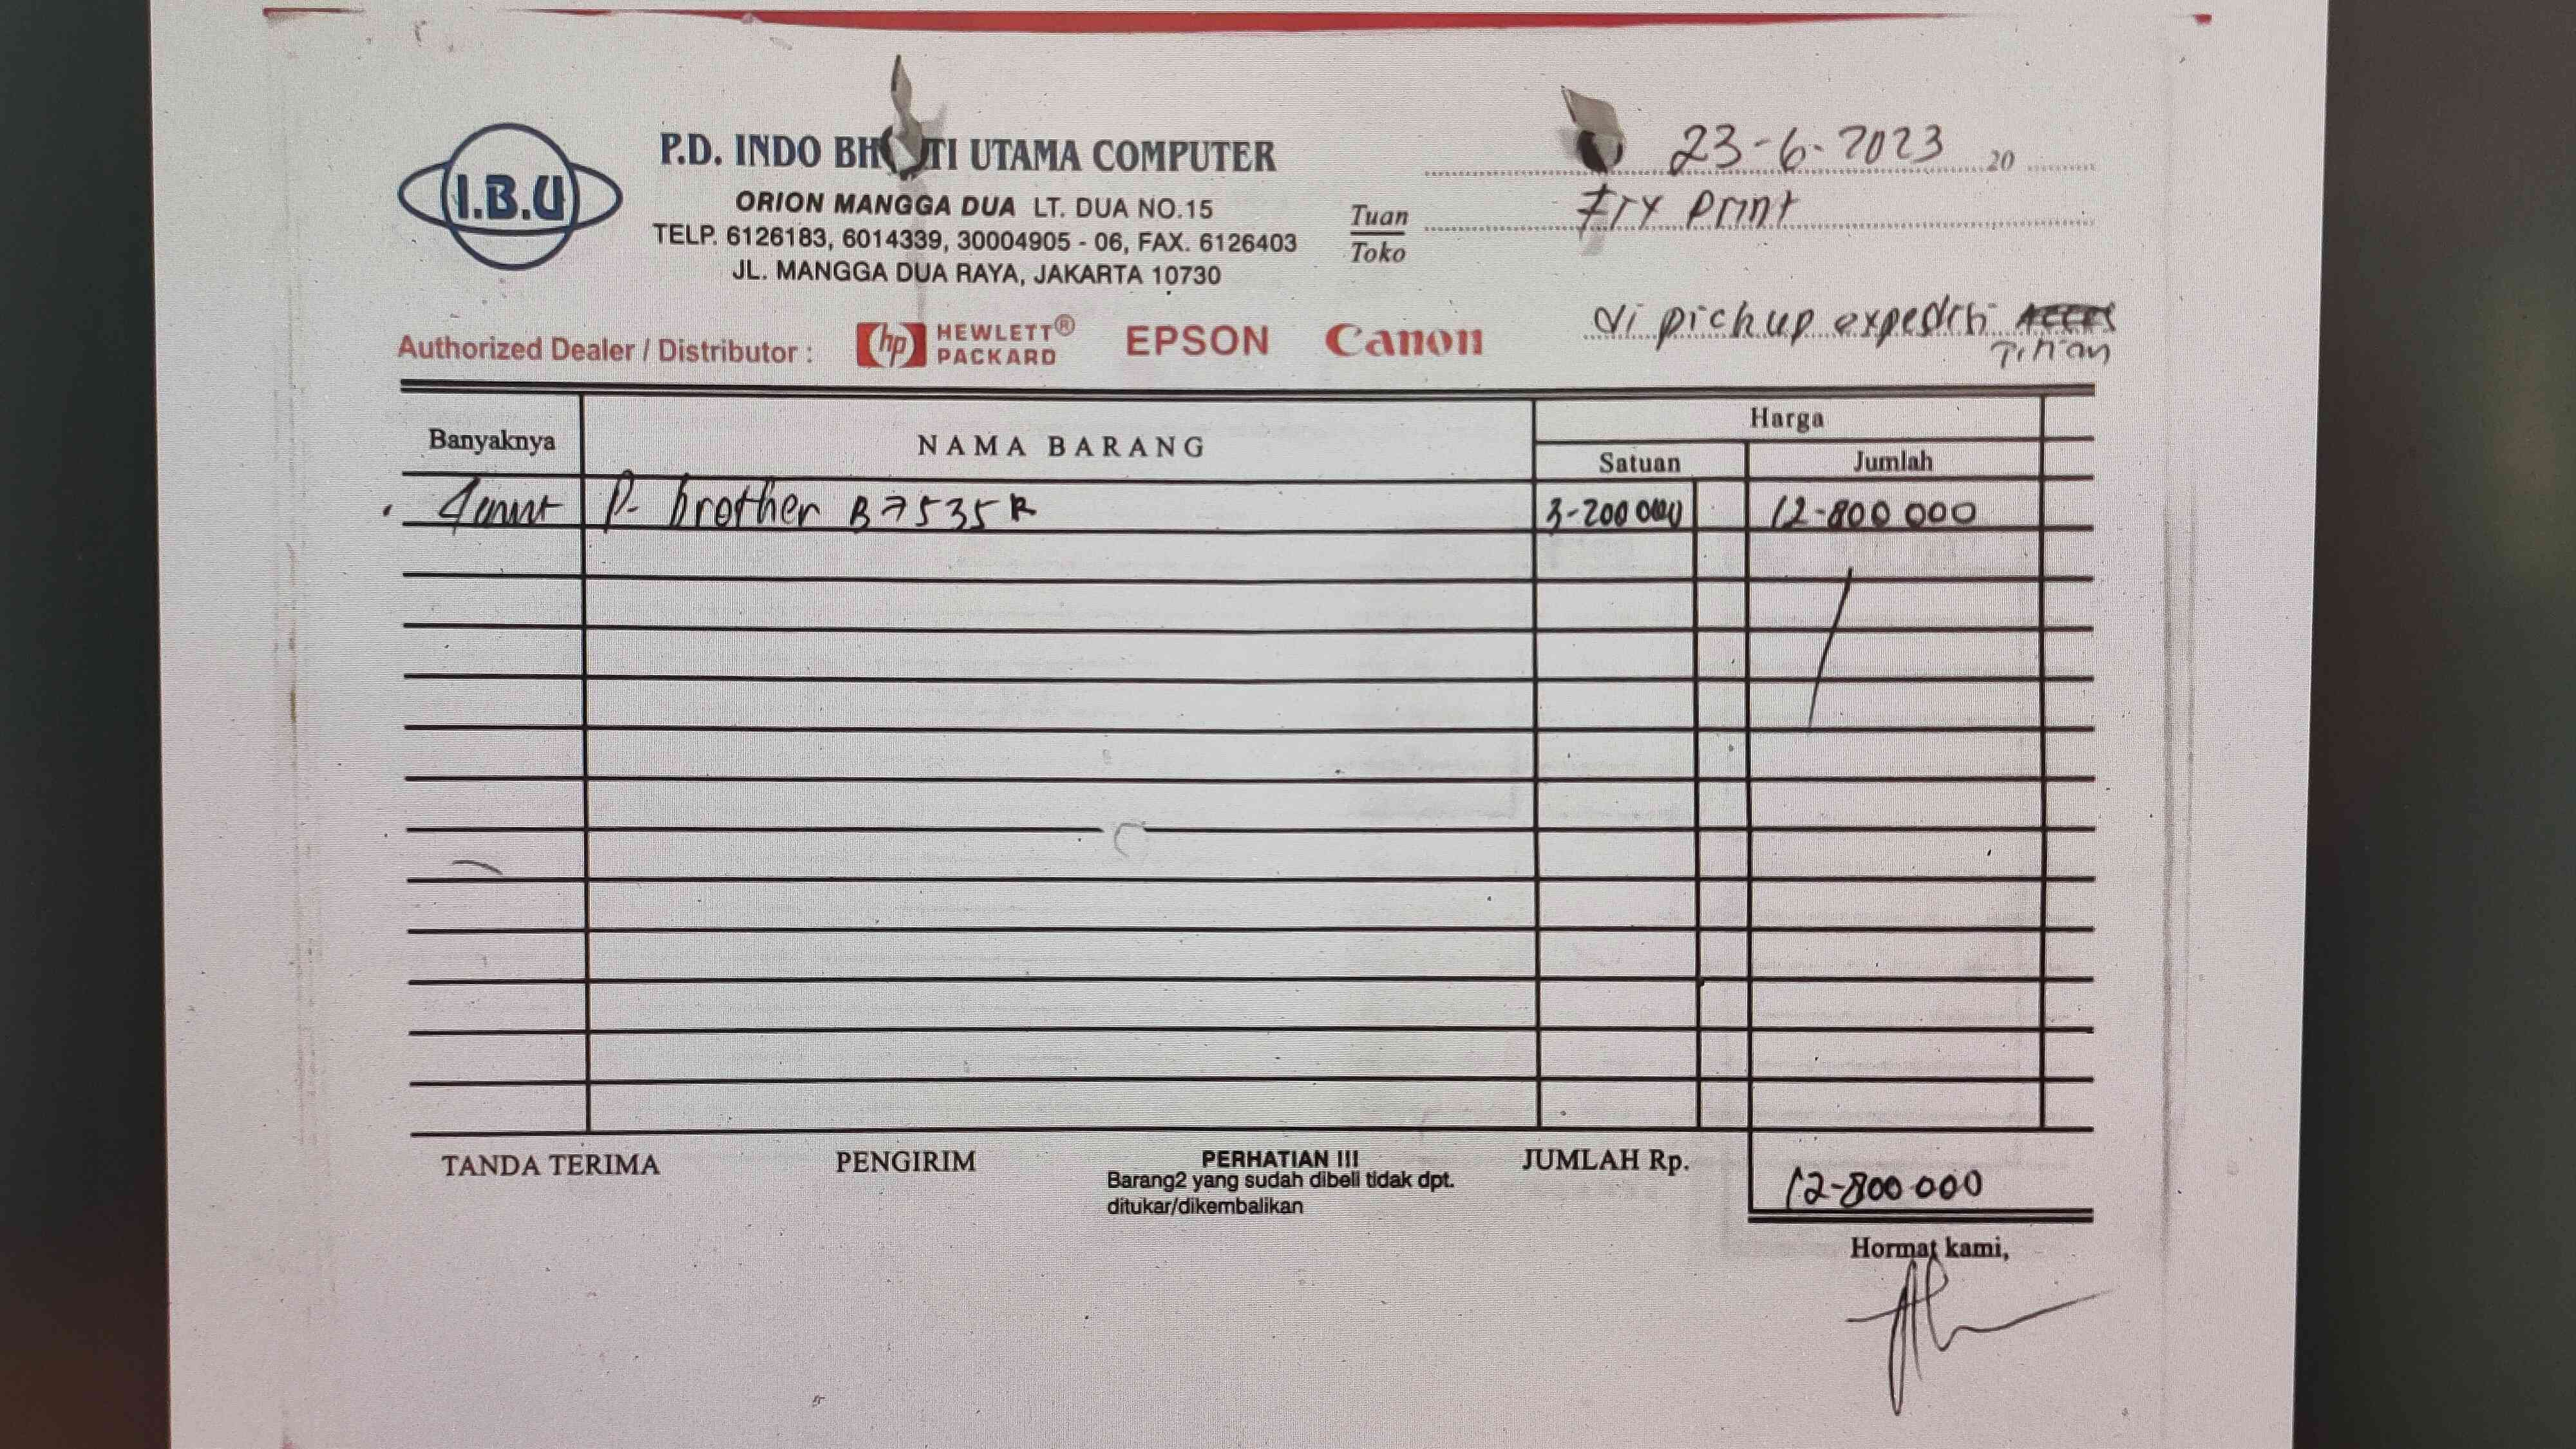 I.B.U
P.D. INDO BHAKTI UTAMA COMPUTER
ORION MANGGA DUA LT. DUA NO.15
TELP. 6126183, 6014339, 30004905 - 06, FAX. 6126403
JL. MANGGA DUA RAYA, JAKARTA 10730
23-6-2023 20
Tuan
Toko
Print
di pick up expedisi
Titian
Authorized Dealer / Distributor : hp HEWLETT® PACKARD EPSON Canon
Banyaknya NAMA BARANG Harga
Satuan Jumlah
4 unit P- brother B7535 3-200 000 12-800 000
TANDA TERIMA PENGIRIM PERHATIAN !!! JUMLAH Rp.
Barang2 yang sudah dibeli tidak dpt.
ditukar/dikembalikan
12-800 000
Hormat kami,